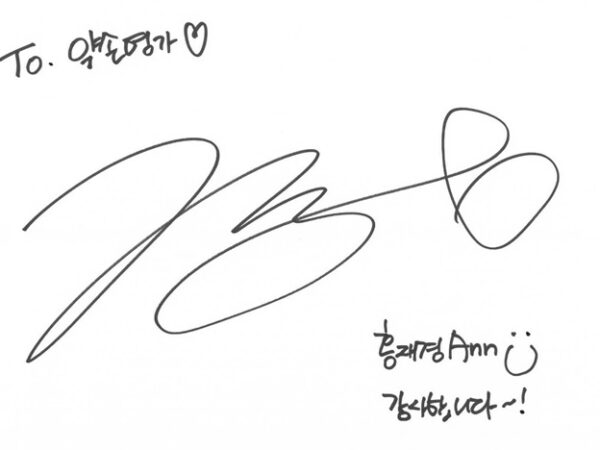 To. 약손명가♡
홍재경 Ann
감사합니다~!